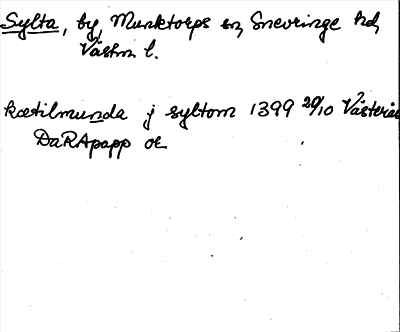 Sylta, by, Munktorps sn, Snevringe hd,
Västm l.
kætilmunda j syltom 1399 20/10 Västerås
DaRApapp or.